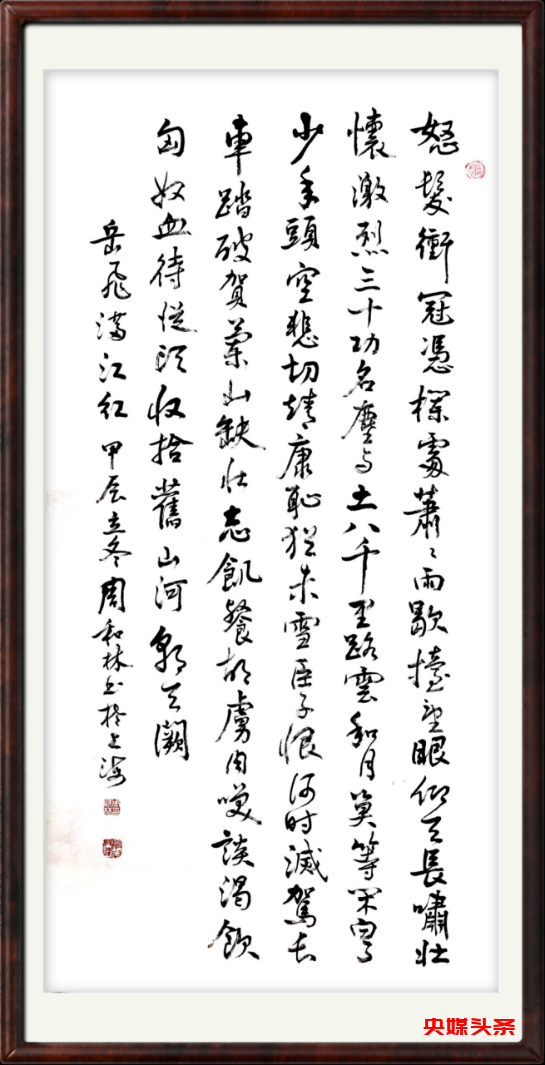 怒髮衝冠憑欄處蕭〻雨歇擡望眼仰天長嘯壯
懷激烈三十功名塵与土八千里路雲和月莫等闲白了
少年頭空悲切靖康恥猶未雪臣子恨何时滅駕長
車踏破賀蘭山缺壯志飢餐胡虜肉笑談渴飲
匈奴血待從頭收拾舊山河朝天闕
岳飛滿江紅 甲辰立冬周和林书於上海
央媒头条